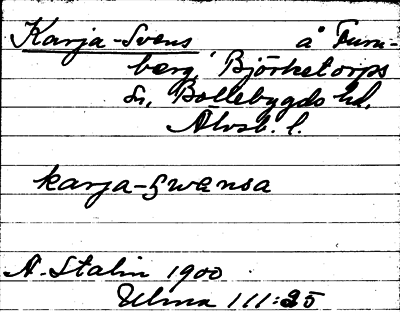 Karja-Svens å Furu-
berg, Björketorps
sn, Bollebygds hd,
Älvsb. l.
karja-swænsa
A. Stalin 1900
Ulma 111:25